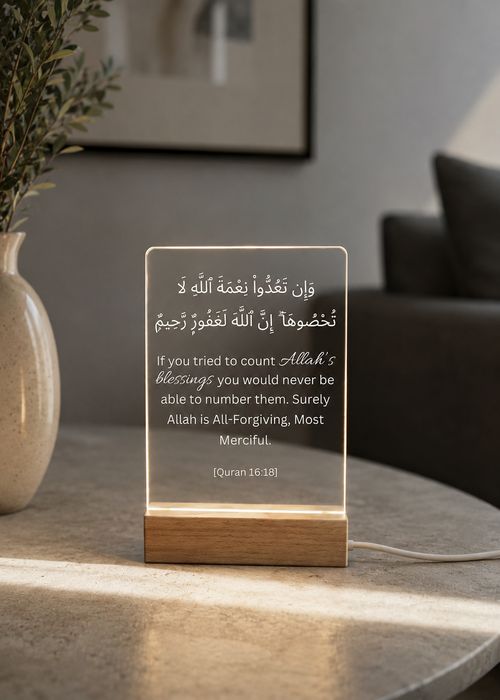 وَإِن تَعُدُّوا۟ نِعْمَةَ ٱللَّهِ لَا
تُحْصُوهَآ ۗ إِنَّ ٱللَّهَ لَغَفُورٌ رَّحِيمٌ
If you tried to count Allah's
blessings you would never be
able to number them. Surely
Allah is All-Forgiving, Most
Merciful.
[Quran 16:18]